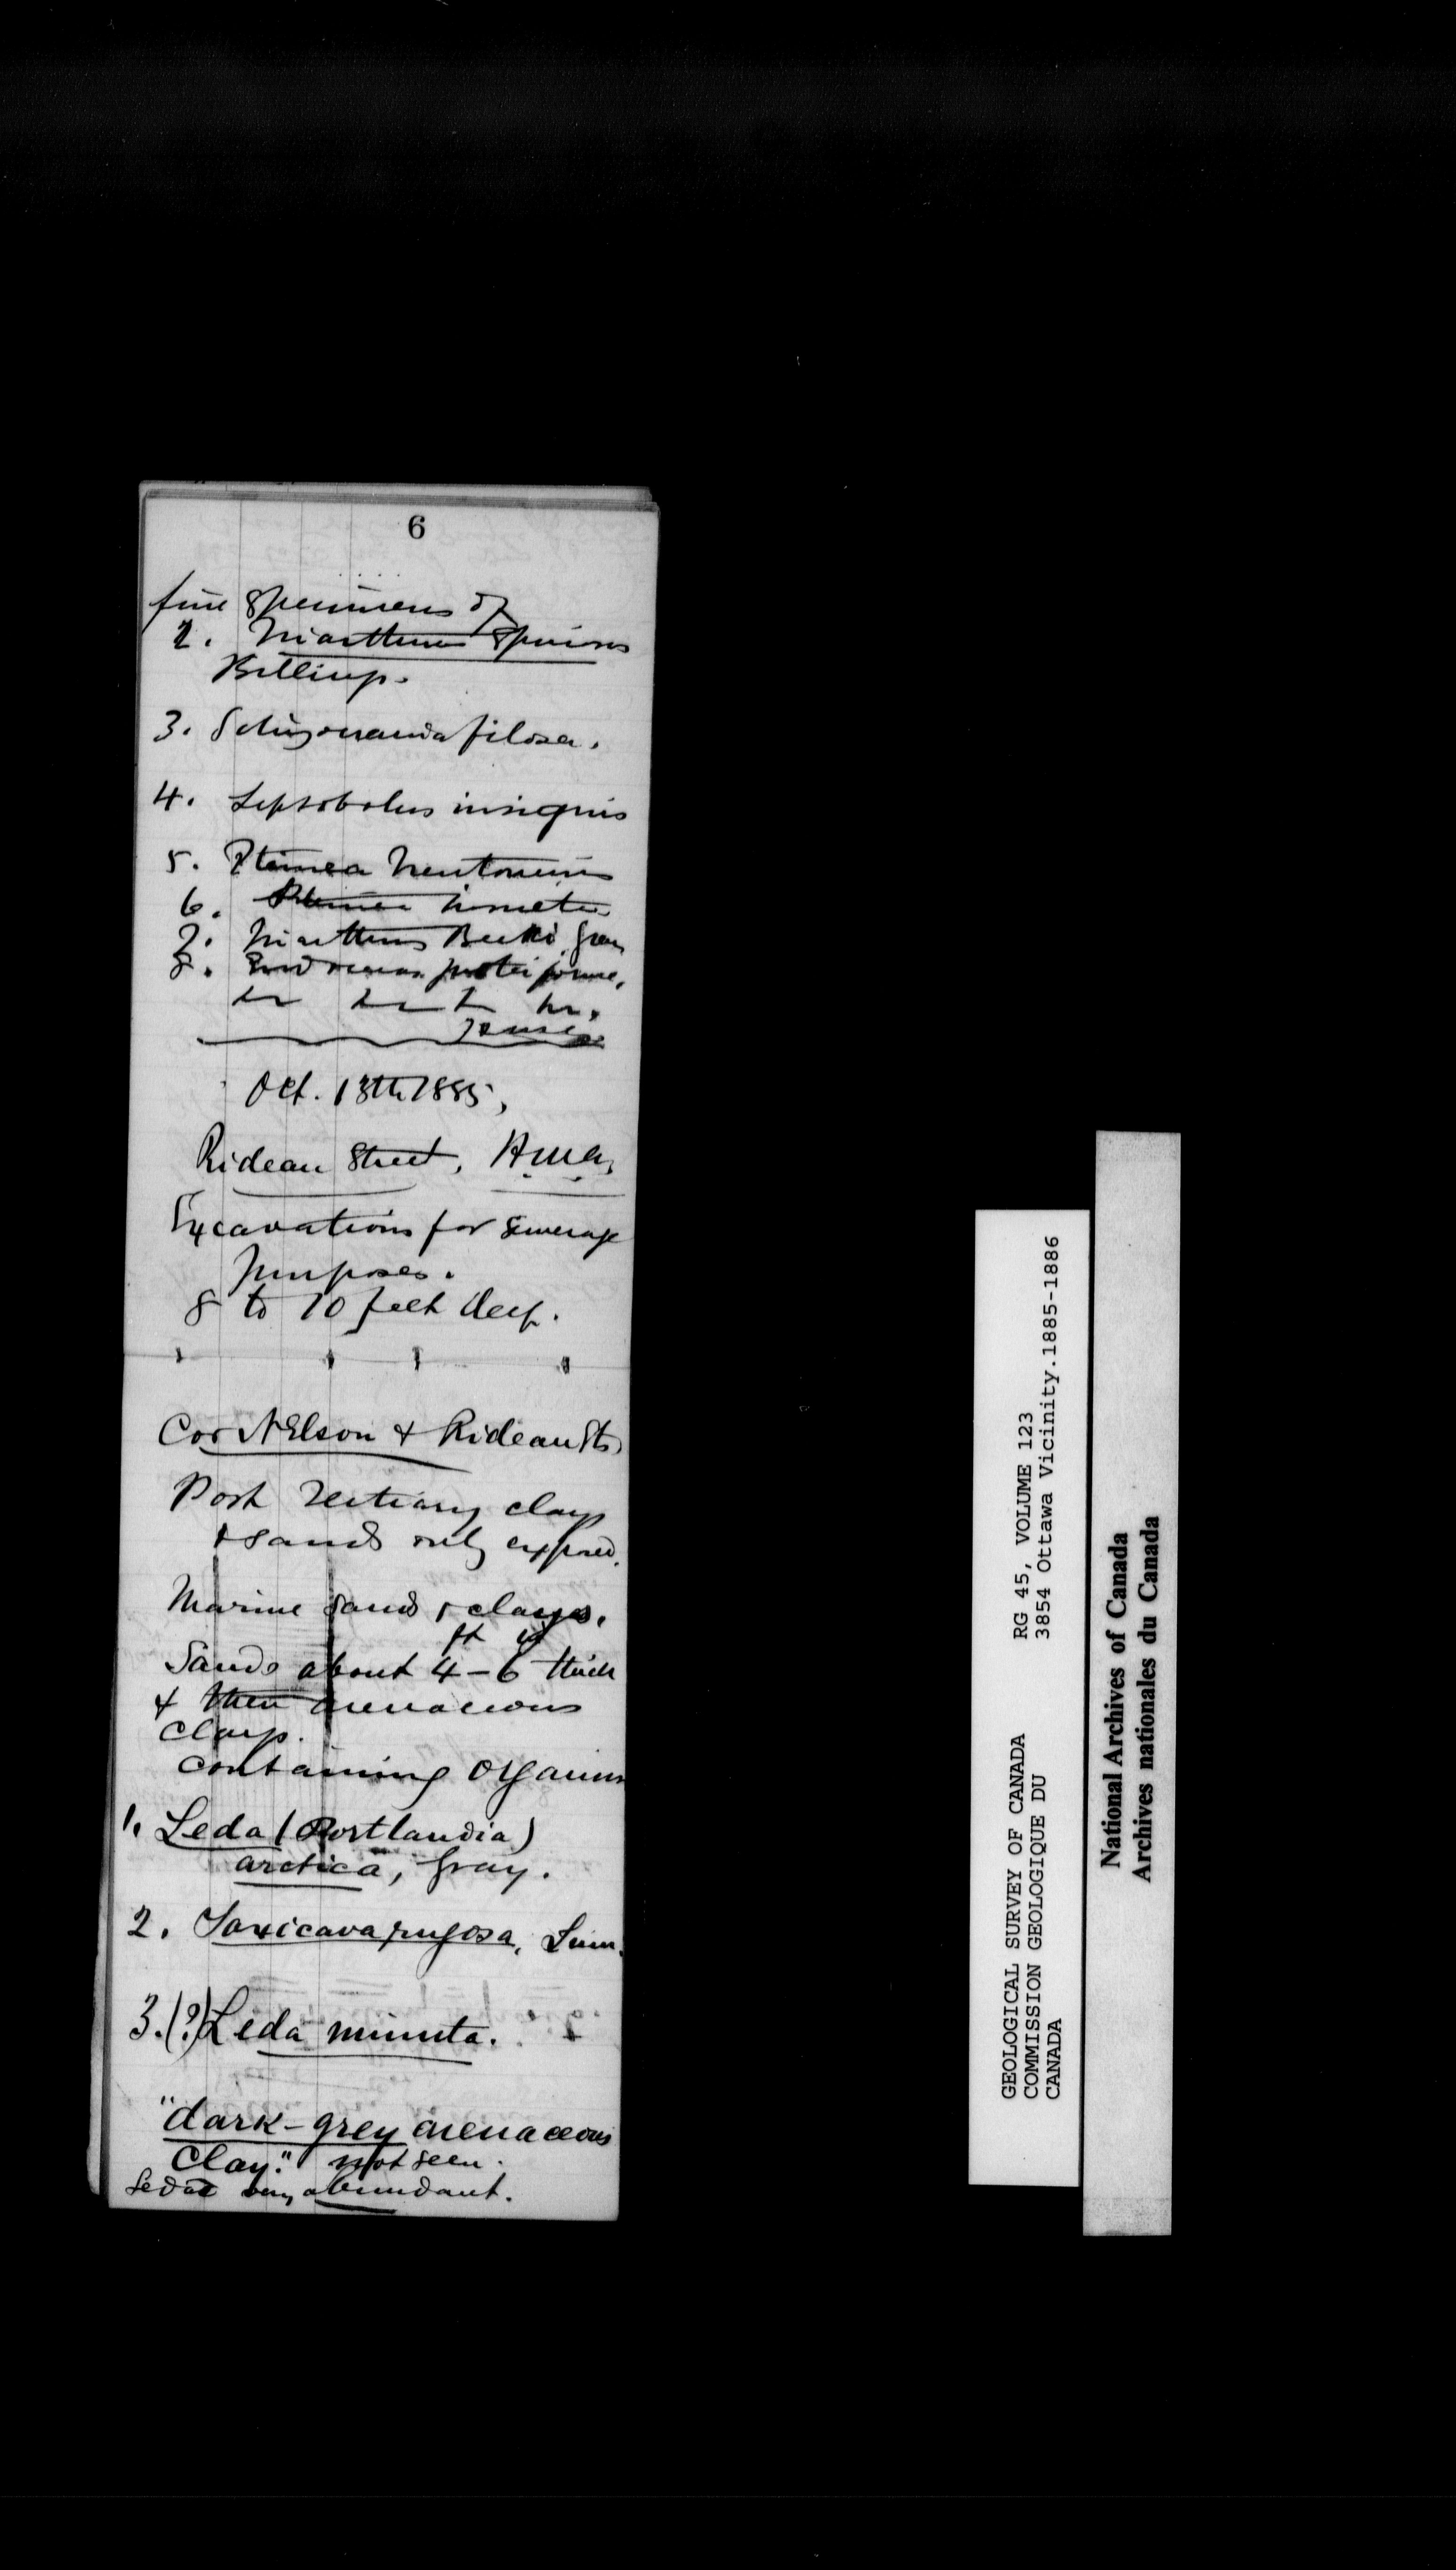 6
fine specimens of
2. Triarthrus spinosus
Billings.
3. Schizocrania filosa.
4. Leptobolus insignis
5. Utica
6.
7. Triarthrus Becki, Green
8. Endoceras proteiforme,
Oct. 13th 1885,
Rideau Street, H.M.A.
Excavations for sewerage
purposes.
8 to 10 feet deep.
Cor Nelson & Rideau Sts,
Post Tertiary clays
& sands only exposed.
Marine sands & clays.
ft
Sands about 4-6 thick
& then arenaceous
clays.
containing organisms
1. Leda (Portlandia)
arctica, Gray.
2. Saxicava rugosa, Linn.
3. (?) Leda minuta.
"dark-grey arenaceous
clay." not seen.
Ledae very abundant.
GEOLOGICAL SURVEY OF CANADA RG 45, VOLUME 123
COMMISSION GEOLOGIQUE DU 3854 Ottawa Vicinity.1885-1886
CANADA
National Archives of Canada
Archives nationales du Canada